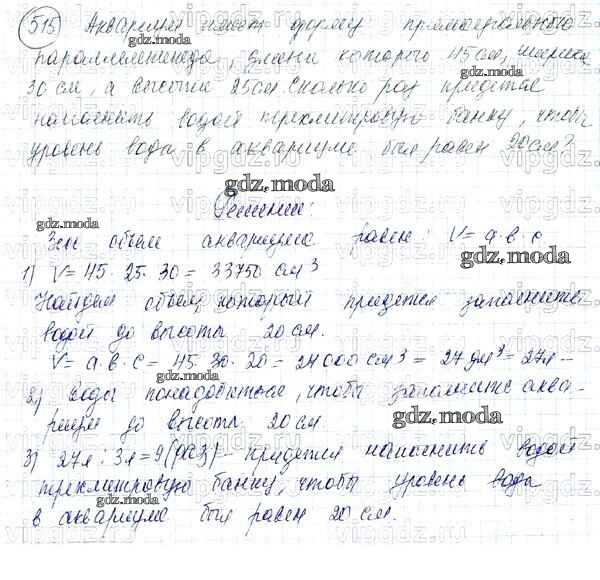 515 Аквариум имеет форму прямоугольного
параллелепипеда, длина которого 45 см, ширина
30 см, а высота 25 см. Сколько раз придется
наполнить водой трехлитровую банку, чтобы
уровень воды в аквариуме был равен 20 см?
Решение:
объем аквариума равен: V = a·b·c
1) V = 45 · 25 · 30 = 33750 см³
Найдем объем, который придется заполнить
водой до высоты 20 см.
V = a·b·c = 45 · 30 · 20 = 27000 см³ = 27 дм³ = 27л –
2) воды понадобиться, чтобы заполнить аква-
риум до высоты 20 см.
3) 27л : 3л = 9 (раз) – придется наполнить водой
трехлитровую банку, чтобы уровень воды
в аквариуме был равен 20 см.
gdz.moda
gdz.moda
gdz.moda
gdz.moda
gdz.moda
gdz.moda
gdz.moda
gdz.moda
gdz.moda
gdz.moda